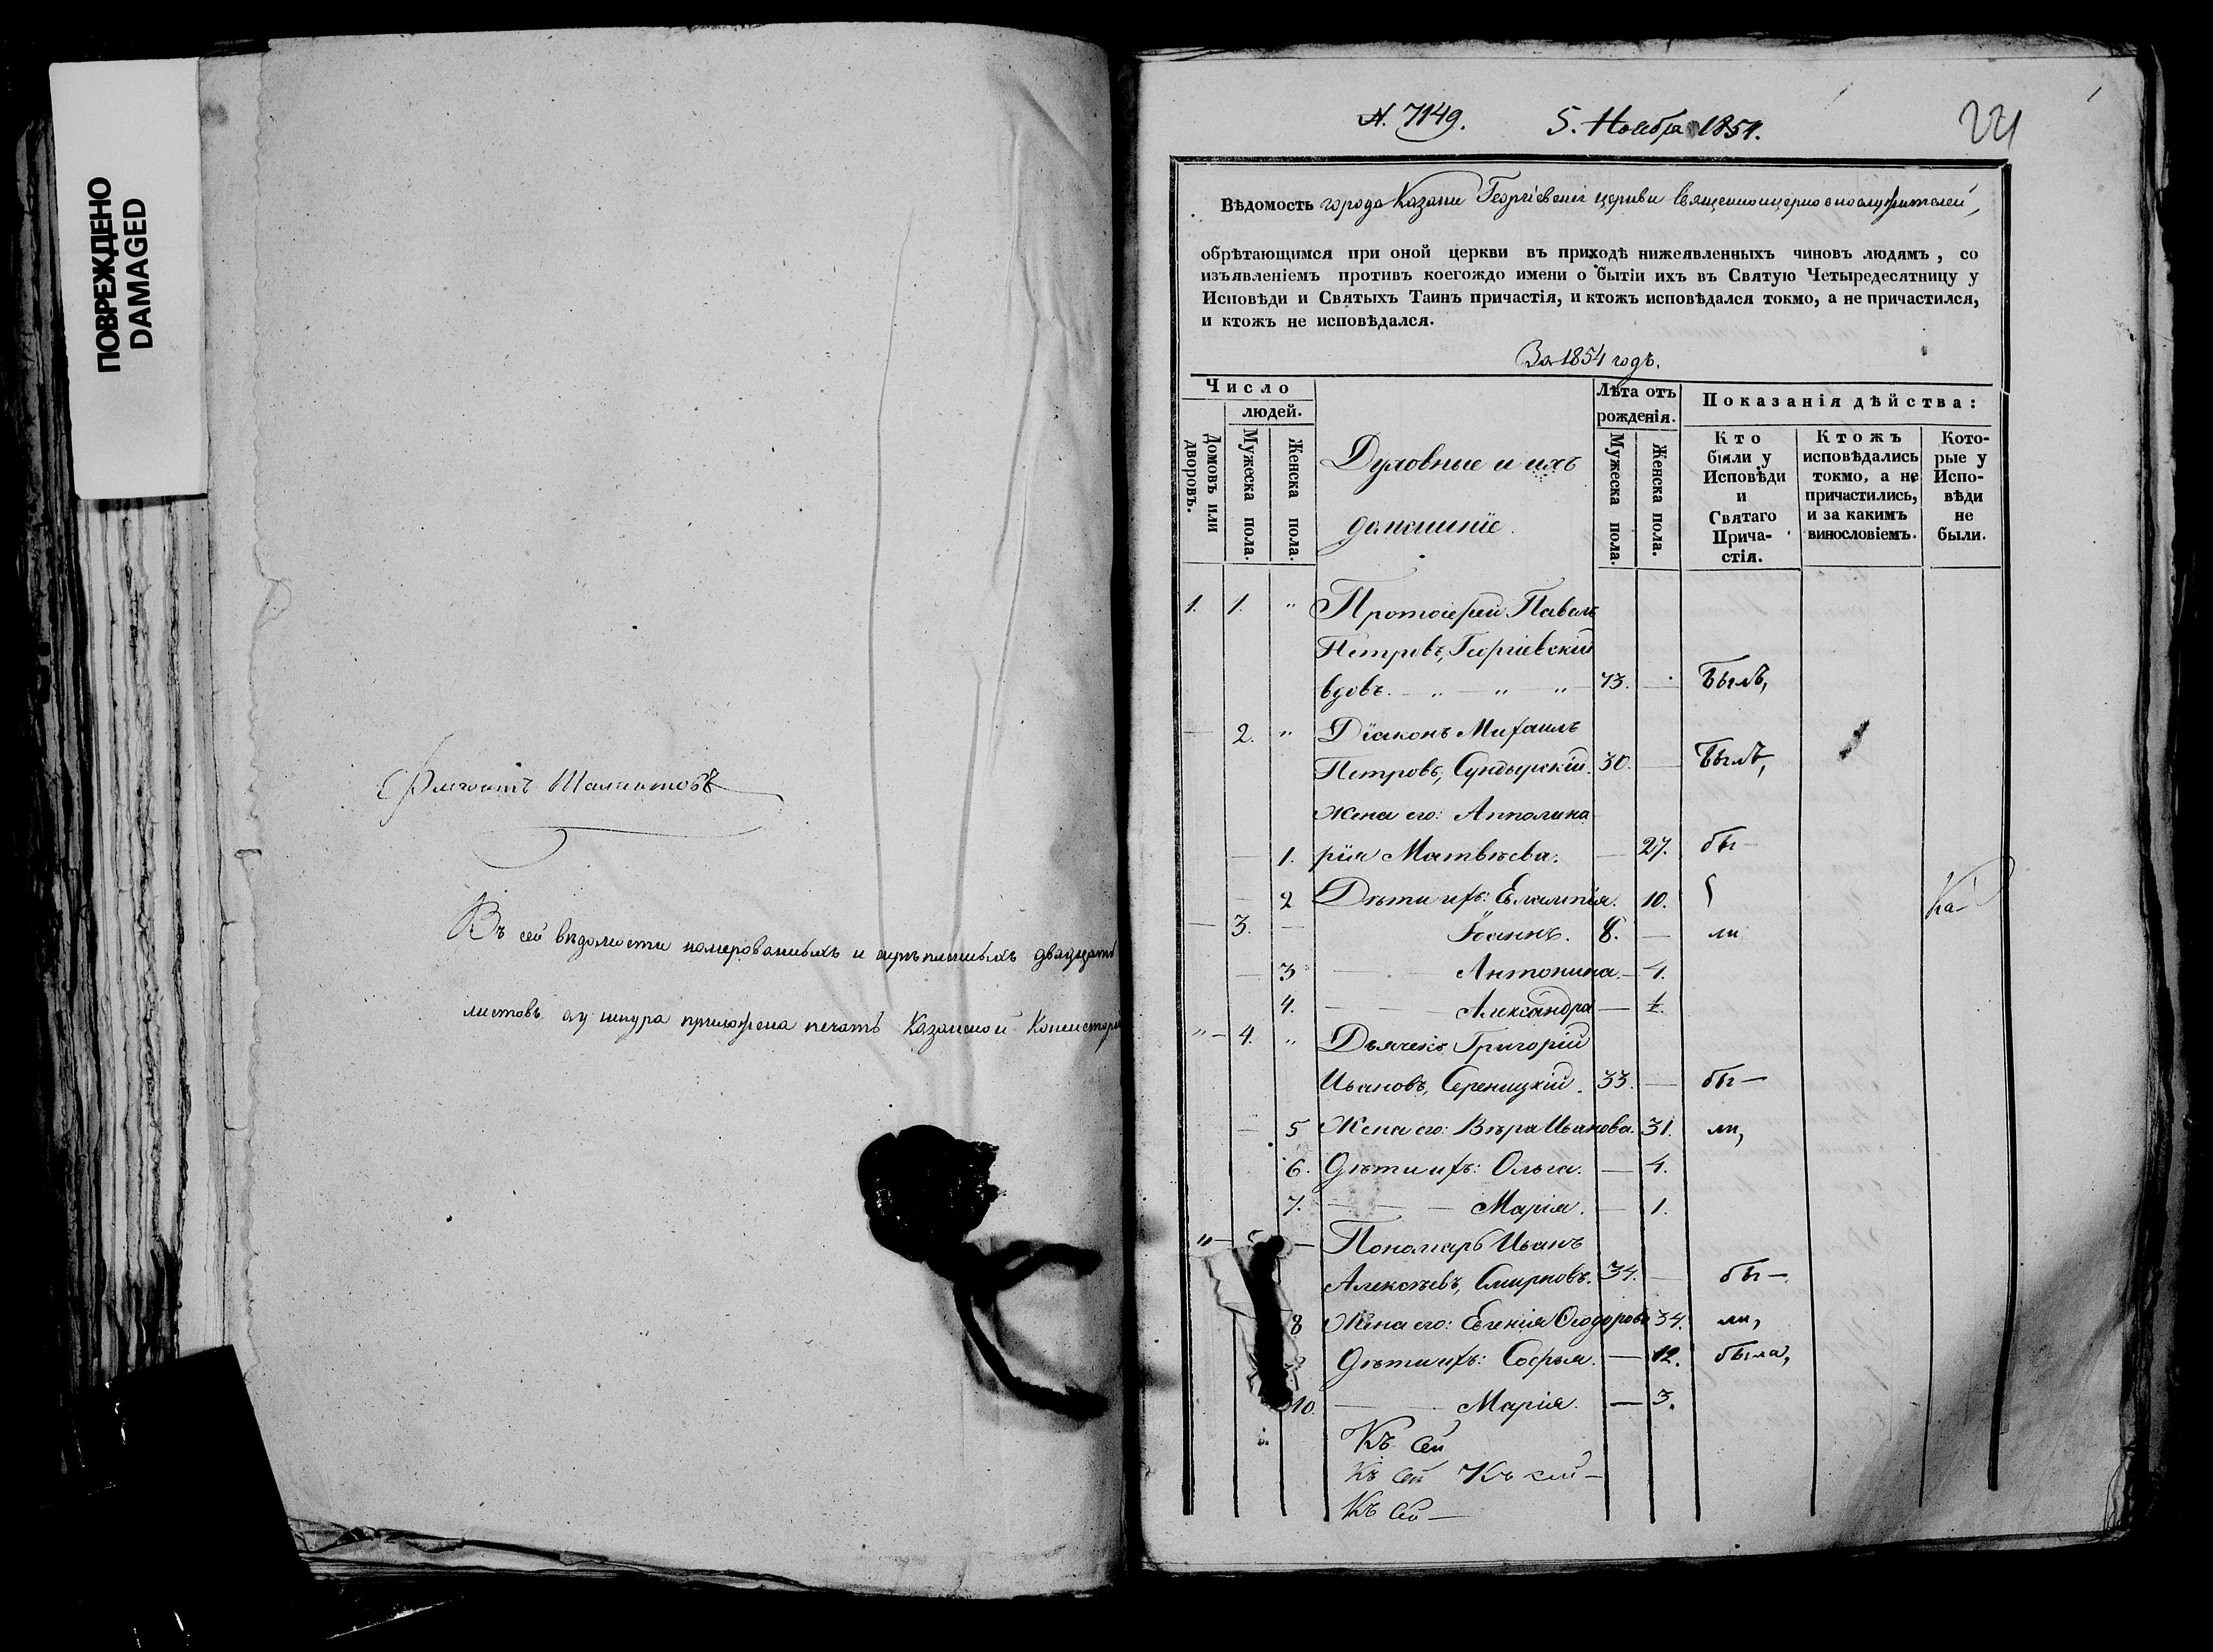 ПОВРЕЖДЕНО
DAMAGED
Въ сей вѣдомости номерованныхъ и скрѣпленныхъ двадцать
листовъ а у шнура приложена печать Казанской Консистор
№. 7149. 5. Ноября 1854.
Вѣдомость города Казани Георгіевскія церкви священноцерковнослужителей,
обрѣтающимся при оной церкви въ приходѣ нижеявленныхъ чиновъ людямъ, со
изъявленіемъ противъ коегождо имени о бытіи ихъ въ Святую Четыредесятницу у
Исповѣди и Святыхъ Таинъ причастія, и ктожъ исповѣдался токмо, а не причастился,
и ктожъ не исповѣдался.
За 1854 годъ.
Число
людей.
Домовъ или дворовъ.
Мужеска пола.
Женска пола.
Духовные и ихъ
домашніе.
Лѣта отъ
рожденія.
Мужеска пола.
Женска пола.
Показанія дѣйства:
Кто
были у
Исповѣди
и
Святаго
Прича-
стія.
Ктожъ
исповѣдались
токмо, а не
причастились,
и за какимъ
винословіемъ.
Кото-
рые у
Испо-
вѣди
не
были.
1. 1. " Протоіерей Павелъ
Петровъ, Георгіевскій
вдовъ. — " — " — " 73. — Былъ,
— 2. " Діаконъ Михаилъ
Петровъ, Сундырскій. 30. — Былъ,
Жена его: Апполина
— 1. рія Матвѣева. — 27. бы-
— 2 Дѣти ихъ: Евлампія. 10.
— 3. — Іоаннъ. 8. — ли
— 3 — Антонина. — 4.
4. — — Александра — 1.
" — 4. " Дьячекъ Григорій
Ивановъ, Сереницкій. 33. — бы—
— 5 Жена его: Вѣра Иванова. 31. ли,
6. Дѣти ихъ: Ольга. — 4.
7. — — — Марія. — 1.
" — — Пономарь Иванъ
Алексѣевъ, Смирновъ. 34. — бы—
8 Жена его: Евгенія Ѳеодорова 34. ли,
Дѣти ихъ: Софья. — 12. была,
10. — — Марія. — 3.
Къ сей
Къ сей Къ сей —
Къ сей —